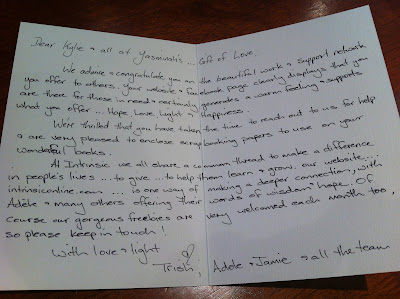 Dear Kylie & all of Yasminah's ... Gift of Love,
We admire & congratulate you on the beautiful work & support network
you offer to others. Your website & facebook page clearly displays that you
are there for those in need & certainly generates a warm feeling & supports
what you offer ... Hope, Love, Light & Happiness.
Were thrilled that you have taken the time to reach out to us for help
& are very pleased to enclose scrapbooking papers to use on your
wonderful books.
At Intrinsic we all share a common thread to make a difference
in people's lives ... to give ... to help them learn & grow. Our website ...
intrinsiconline.com ... is one way of making a deeper connection, with
Adèle & many others offering their words of wisdom & hope. Of
course our gorgeous freebies are very welcomed each month too,
so please keep in touch!
With love & light
Trish, Adèle & Jamie & all the team